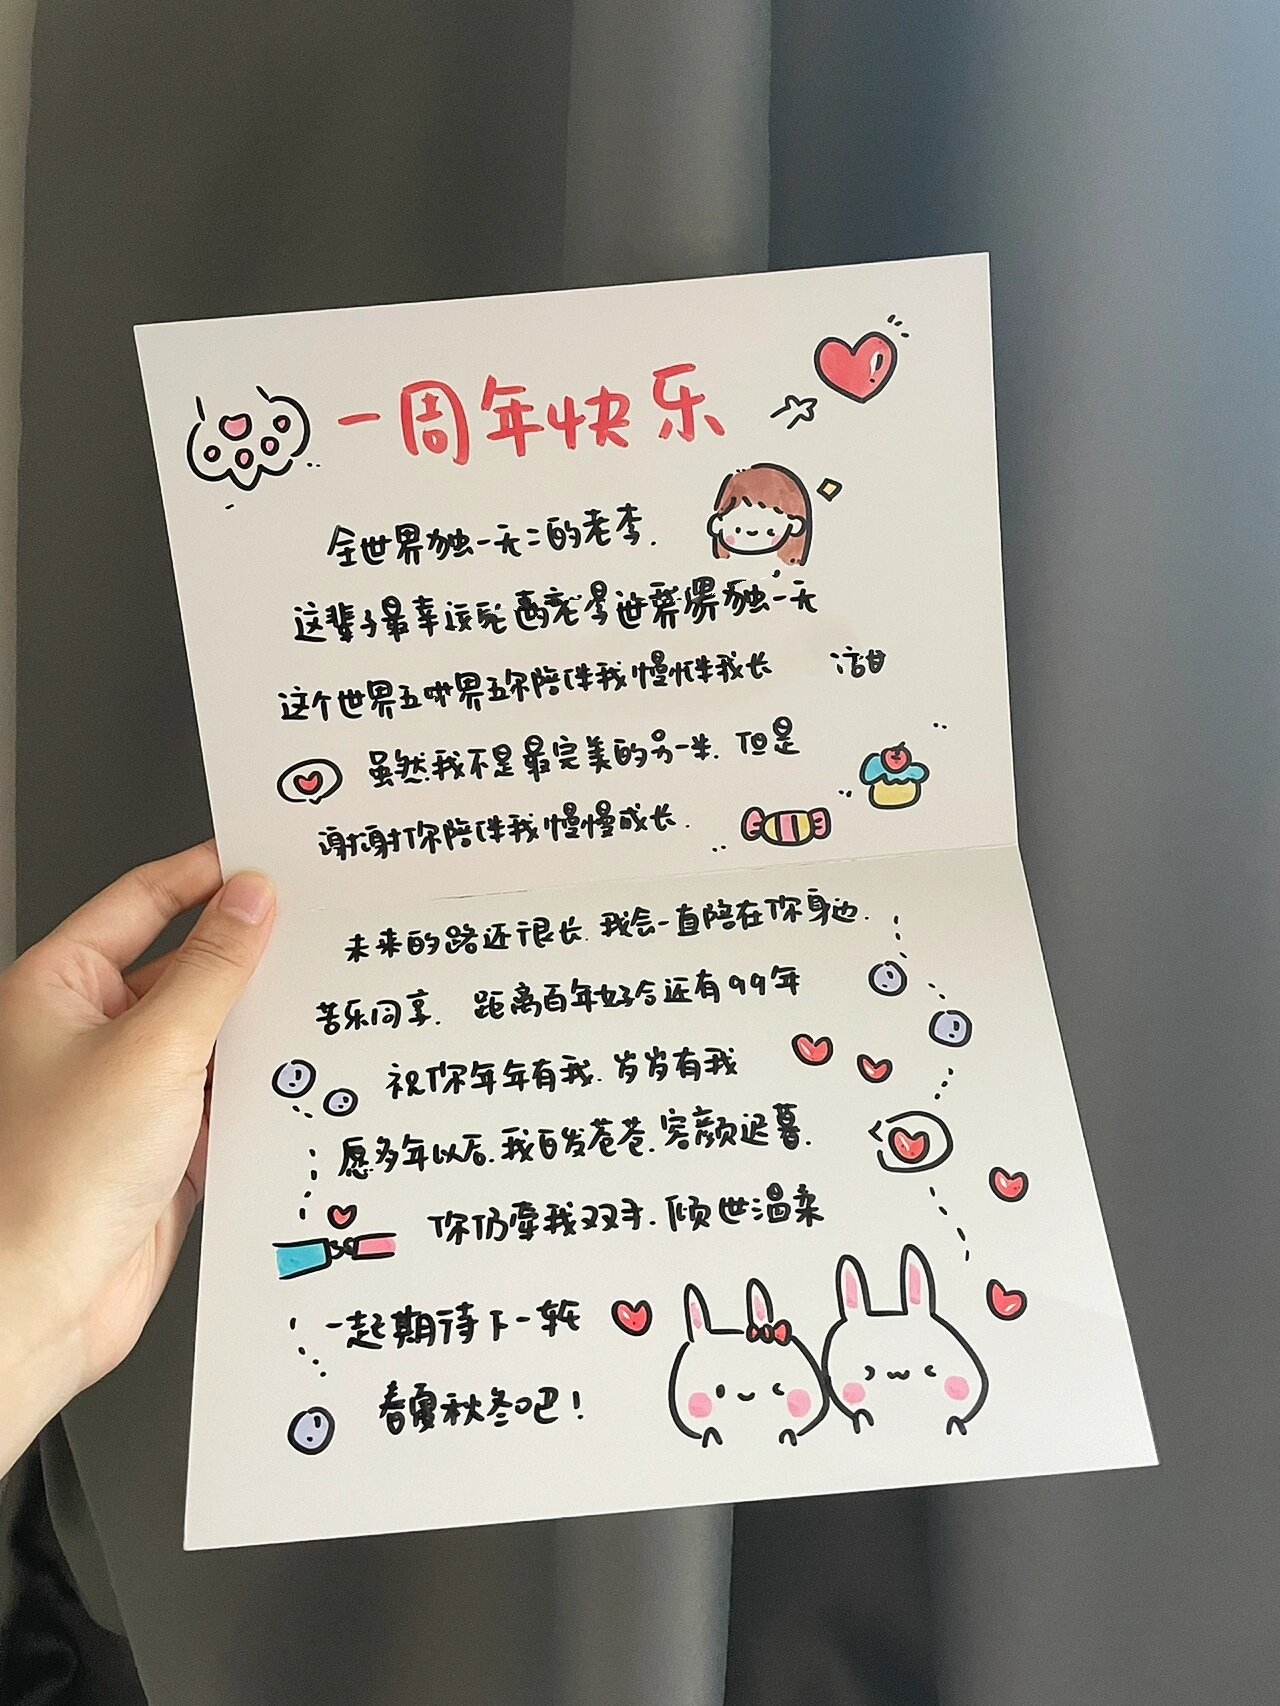 一周年快乐
全世界独一无二的老李.
这辈子最幸 世界 独一无
这个世界五 界五你陪伴我慢 伴我长
虽然我不是最完美的另一半. 但是
谢谢你陪伴我慢慢成长.
未来的路还很长. 我会一直陪在你身边.
苦乐同享. 距离百年好合还有99年
祝你年年有我. 岁岁有我
愿多年以后. 我白发苍苍. 容颜迟暮.
你仍牵我双手. 倾世温柔
一起期待下一轮
春夏秋冬吧!